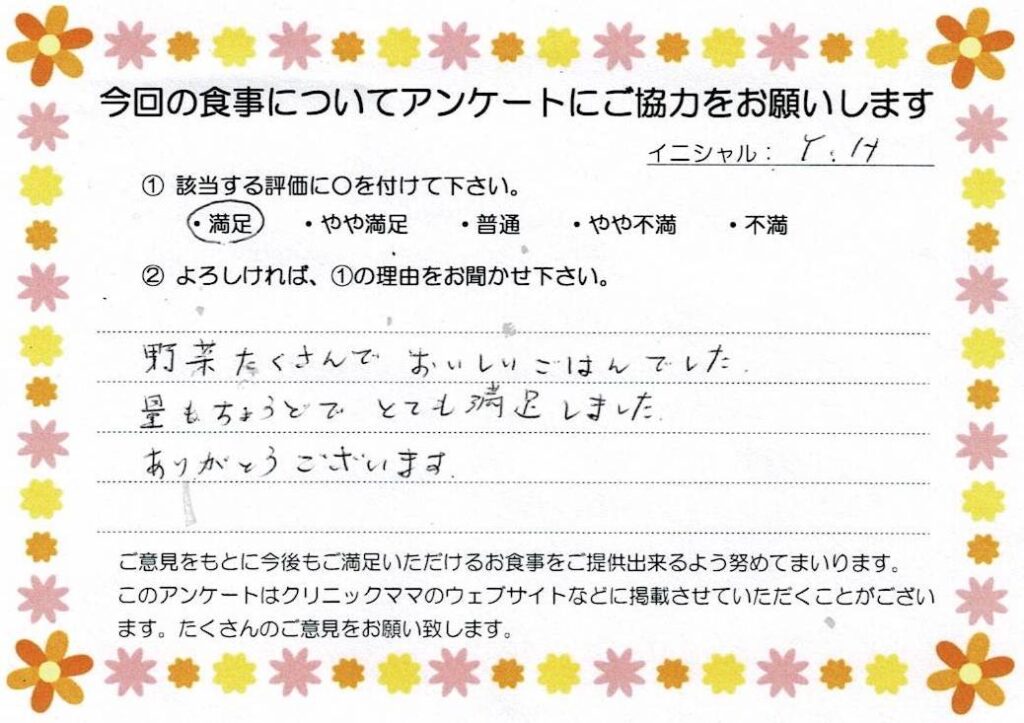 今回の食事についてアンケートにご協力をお願いします
イニシャル： Y.H
① 該当する評価に〇を付けて下さい。
・満足 ・やや満足 ・普通 ・やや不満 ・不満
② よろしければ、①の理由をお聞かせ下さい。
野菜たくさんで おいしいごはんでした.
量もちょうどで とても満足しました.
ありがとうございます.
ご意見をもとに今後もご満足いただけるお食事をご提供出来るよう努めてまいります。
このアンケートはクリニックママのウェブサイトなどに掲載させていただくことがござい
ます。たくさんのご意見をお願い致します。